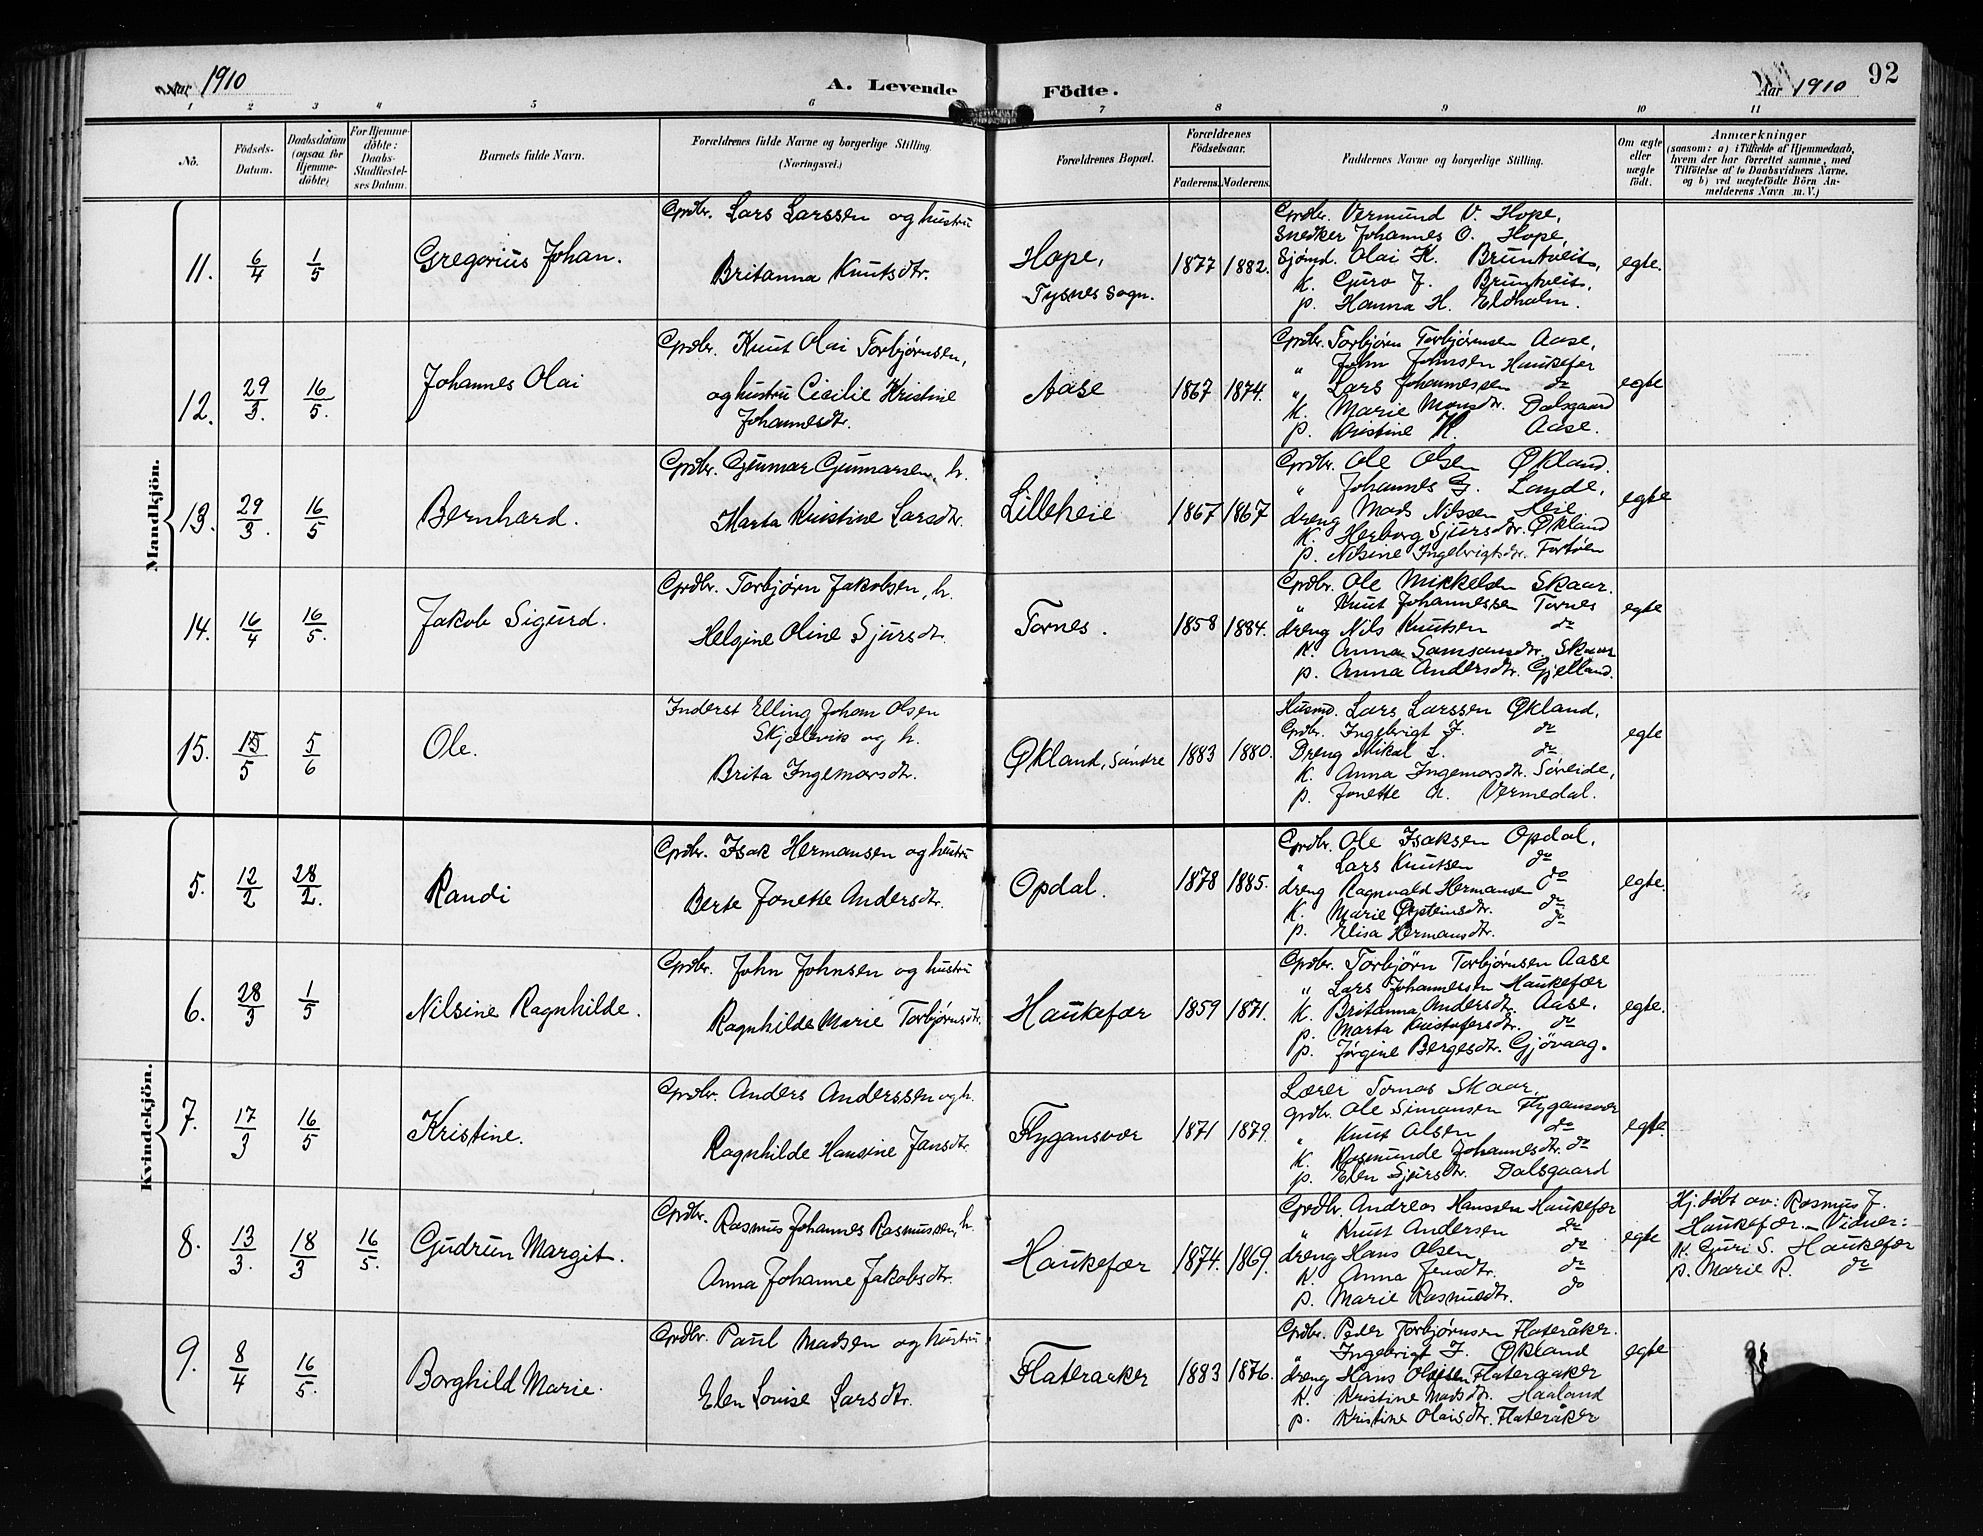 Aar 1910
A. Levende Födte.
Aar 1910
92
1 2 3 4 5 6 7 8 9 10 11
No.
Födsels-Datum.
Daabsdatum (ogsaa for Hjemme-döbte)
For Hjemme-döbte: Daabs-Stadfæstel-ses Datum.
Barnets fulde Navn.
Forældrenes fulde Navne og borgerlige Stilling.
(Næringsvei.)
Forældrenes Bopæl.
Forældrenes Födselsaar.
Faderens. Moderens.
Faddernes Navne og borgerlige Stilling.
Om ægte eller uægte født.
Anmærkninger
(saasom: a) i Tilfælde af Hjemmedaab, hvem der har forrettet samme, med Tilföielse af to Daabsvidners Navne, og b) ved uægtefödte Börn An-melderens Navn m. V.)
Mandkjön.
11. 6/4 1/5 Gregorius Johan.
Grdbr. Lars Larssen og hustru
Britanna Knutsdtr.
Hope,
Tysnes sogn.
1877 1882.
Grdbr. Vermund V. Hope,
Snedker Johannes O. Hope,
Sjømd. Olai K. Bruntveit,
K. Guro J. Bruntveit,
p. Hanna H. Eldholm.
egte.
12. 29/3. 16/5. Johannes Olai
Grdbr. Knut Olai Torbjørnsen,
og hustru Cicilie Kristine
Johannesdtr.
Aase
1867 1874.
Grdbr. Torbjørn Torbjørnsen Aase,
" John Johnsen Haukefær
" Lars Johannessen do
K. Marie Monsdtr. Dalsgaard
p. Kristine K. Aase.
egte
13. 29/3. 16/5 Bernhard.
Grdbr. Gunnar Gunnarsen, h.
Marta Kristine Larsdtr.
Lilleheie
1867 1867
Grdbr. Ole Olsen Økland.
" Johannes G. Lande,
dreng Mads Nilssen Heie
K. Herborg Sjursdtr. Økland
p. Nilsine Ingebrigtsdtr.
egte
14. 16/4 16/5. Jakob Sigurd.
Grdbr. Torbjørn Jakobsen, h.
Helgine Oline Sjursdtr.
Tornes.
1858 1884.
Grdbr. Ole Mikkelsen Skaar.
" Knut Johannessen Tornes
dreng Nils Knutsen do
K. Anna Samsonsdtr. Skaar
p. Anna Andersdtr. Gjelland.
egte
15. 15/5 5/6 Ole.
Inderst Elling Johan Olsen
Skjælevik og h.
Brita Ingemorsdtr.
Økland, Søndre
1883 1880.
Husmd. Lars Larssen Økland,
Grdbr. Ingebrigt J. do
Dreng Mikal L. do
K. Anna Ingemorsdtr. Søreide,
p. Jonette A. Vermedal.
egte
Kvindekjön.
5. 12/2 28/2. Randi
Grdbr. Isak Hermansen og hustru
Berte Jonette Andersdtr.
Opdal.
1878 1885.
Grdbr. Ole Isaksen Opdal,
" Lars Knutsen do
dreng Ragnvald Hermansen do
K. Marie Øysteinsdtr. do
p. Elisa Hermansdtr. do
egte.
6. 28/3 1/5 Nilsine Ragnhilde.
Grdbr. John Johnsen og hustru
Ragnhilde Marie Torbjørnsdtr.
Haukefær
1859 1871.
Grdbr. Torbjørn Torbjørnsen Aase
" Lars Johannessen Haukefær
K. Britanna Andersdtr. Aase.
p. Marta Kristofersdtr. do
p. Jørgine Bergesdtr. Gjøvaag.
egte.
7. 17/3 16/5 Kristine.
Grdbr. Anders Anderssen og h.
Ragnhilde Hansine Jansdtr.
Flygansvær
1871 1879.
Lærer Tomas Skaar
Grdbr. Ole Simonsen Flygansvær
" Knut Olsen do
K. Rasmunde Johannesdtr. do
p. Elen Sjursdtr. Dalsgaard
egte.
8. 13/3. 18/3 16/5. Gudrun Margit.
Grdbr. Rasmus Johannes Rasmussen, h.
Anna Johanne Jakobsdtr.
Haukefær
1874. 1869.
Grdbr. Andreas Hanssen Haukefær
" Knut Andersen do
dreng Hans Olsen do
K. Anna Jensdtr. do
p. Marie Rasmusdtr. do
egte
Hj. døbt av: Rasmus J.
Haukefær. – Vidner:
K. Guri S. Haukefær
p. Marie R. do
9. 8/4 16/5. Borghild Marie.
Grdbr. Paul Madsen og hustru
Elen Lovise Larsdtr.
Flateraaker
1883 1876.
Grdbr. Peder Torbjørnsen Flateråker.
" Ingebrigt J. Økland
dreng Hans Olsen Flateraaker
K. Kristine Madsdtr. Haaland
p. Kristine Olaisdtr. Flateråker
egte